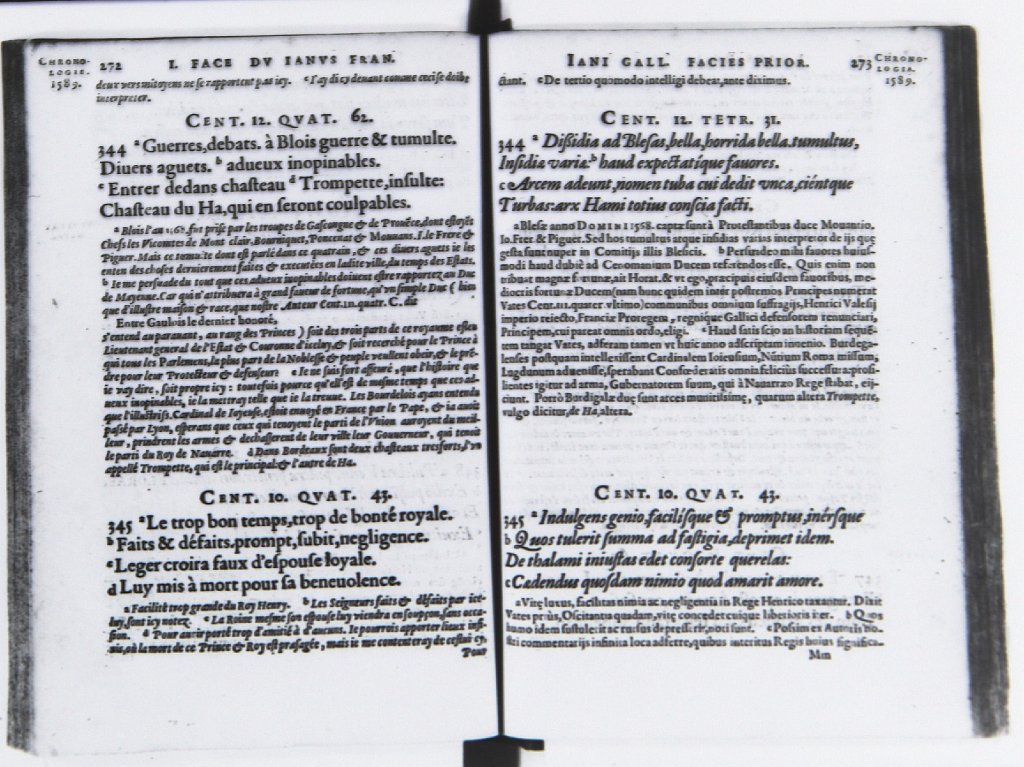 CHRONO-
LOGIE.
1589.
272 I. FACE DV IANVS FRAN.
deux vers mitoyens ne se rapportent pas icy. c I'ay dit cy denant comme cecise doibt
interpreter.
CENT. 12. QVAT. 62.
344 a Guerres, debats. à Blois guerre & tumulte.
Diuers aguets. b adueux inopinables.
c Entrer dedans chasteau d Trompette, insulte:
Chasteau du Ha, qui en seront coulpables.
a Blois l'an 1568. fut prise par les troupes de Gascongne & de Prouẽce, dont estoyẽt
Chefs les Vicomtes de Mont clair, Bourniquet, Poncenat & Mouuans, I. le Frere &
Piguer. Mais ce tumulte dont est parlé dans ce quatrain, & ces diuers aguets ie les
enten des choses dernierement faites & executées en ladite ville, du temps des Estats.
b Ie me persuade du tout que ces adueux inopinables doiuent estre rapportez au Duc
de Mayenne. Car qui n'attribuera à grand faueur de fortune, qu'vn simple Duc (bien
que d'illustre maison & race, que nostre Auteur Cent. 10. quatr. C. dit
Entre Gaulois le dernier honoré,
s'entend auparauant, au rang des Princes) soit des trois parts de ce royaume esleu
Lieutenant general de l'Estat & Couronne d'iceluy, & soit recerché pour le Prince à
qui tous les Parlemens, la plus part de la Noblesse & peuple veullent obeir, & le pré-
dre pour leur Protecteur & defenseur c Ie ne suis fort asseuré, que l'histoire que
ie vay dire, soit propre icy : toutefois pource qu'ell'est de mesme temps que ces ad-
ueux inopinables, ie la mettray telle que ie la treuue. Les Bourdelois ayans entendu
que l'illustriss. Cardinal de Ioyeuse, estoit enuoyé en France par le Pape, & ia auoit
passé par Lyon, esperans que ceux qui tenoyent le parti de l'Vnion auroyent du meil-
leur, prindrent les armes & dechasserent de leur ville leur Gouuerneur, qui tenoit
le parti du Roy de Nauarre. d Dans Bordeaux sont deux chasteaux tresforts, l'vn
appellé Trompette, qui est le principal: & l'autre de Ha.
CENT. 10. QVAT. 43.
345 a Le trop bon temps, trop de bonté royale.
b Faits & défaits. prompt, subit, negligence.
c Leger croira faux d'espouse loyale.
d Luy mis à mort pour sa beneuolence.
a Facilité trop grande du Roy Henry. b Les Seigneurs faits & défaits par ice-
luy, sont icy notez. c La Roine mesme son espouse luy viendra en soupçon, sans occa-
sion. d Pour auoir porté trop d'amitié à d'aucuns. Ie pourrois apporter lieux infi-
nis, où la mort de ce Prince & Roy est presagée, mais ie me contenteray de cestui cy,
Pour
IANI GALL. FACIES PRIOR. 273
CHRONO-
LOGIA.
1589.
stant. c De tertio quomodo intelligi debeat, ante diximus.
CENT. 12. TETR. 31.
344 a Dissidia ad Blesas, bella, horrida bella. tumultus,
Insidiæ variæ b haud expectatique fauores.
c Arcem adeunt, nomen tuba cui dedit vnca, ciéntque
Turbas: arx Hami totius conscia facti.
a Blesæ anno DOMINI 1568. captæ sunt à Protestantibus duce Mouantio.
Io. Frer & Piguer. Sed hos tumultus atque insidias varias interpretor de ijs quæ
gesta sunt nuper in Comitijs illis Blesicis. b Persuadeo mihi fauores huius-
modi haud dubiè ad Cenomanium Ducem referendos esse. Quis enim non
tribuat magnæ fortunæ, ait Horat. & vt ego, præcipuis eiusdem fauoribus, me-
diocris fortunæ Ducem (nam hunc quidem inter postremos Principes numerat
Vates Cent. III. quater vltimo) communibus omnium suffragijs, Henrici Valesij
imperio reiecto, Franciæ Proregem, regnique Gallici defensorem renunciari,
Principem, cui pareat omnis ordo, eligi. c Haud satis scio an historiam sequē-
tem tangat Vates, adferam tamen vt huic anno adscriptam inuenio. Burdega-
lenses postquam intellexissent Cardinalem Ioieusium, Nūtium Roma missum,
Lugdunum aduenisse, sperabant Confœderatis omnia felicius successura: prosi-
lientes igitur ad arma, Gubernatorem suum, qui à Nauarræo Rege stabat, eij-
ciunt. Porrò Burdigalæ duę sunt arces munitissimę, quarum altera Trompette,
vulgo dicitur, de Ha, altera.
CENT. 10. QVAT. 43.
345 a Indulgens genio, facilisque & promptus, inérsque
b Quos tulerit summa ad fastigia, deprimet idem.
De thalami iniustas edet consorte querelas:
c Cædendus quosdam nimio quod amarit amore.
a Vitę luxus, facilitas nimia ac negligentia in Rege Henrico taxantur. Dixit
Vates priùs, Oscitantia quadam, vitę concedet cuique liberioris iter. b Quos
homo idem sustulerit ac rursus depresserit, noti sunt. c Possim ex Autoris no-
stri commentarijs infinita loca adferre, quibus interitus Regis huius significa-
Mm